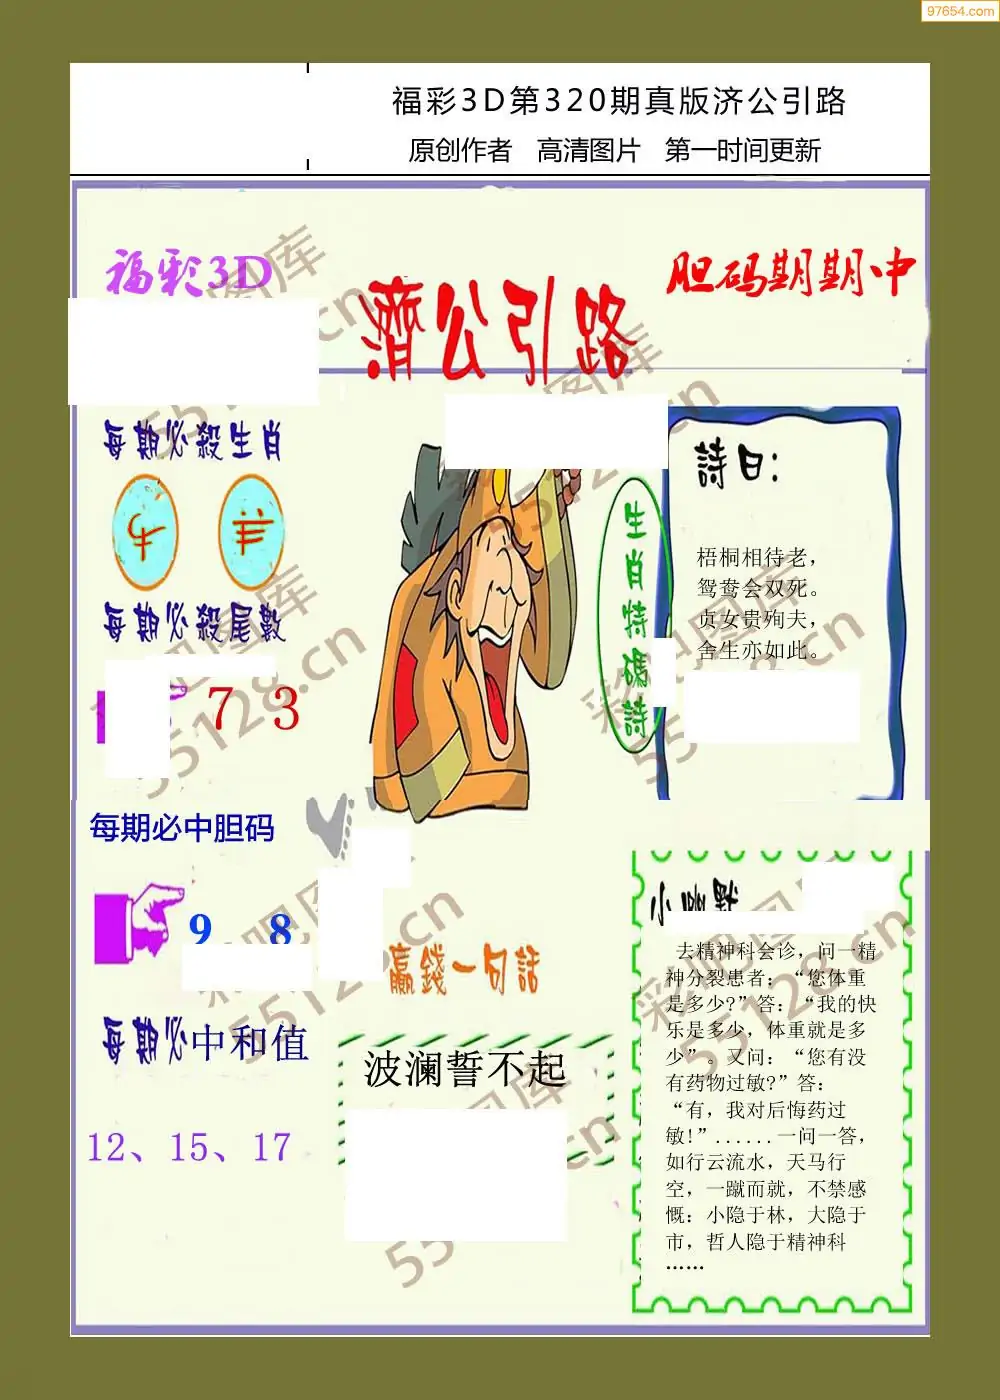 97654.com
福彩3D第320期真版济公引路
原创作者 高清图片 第一时间更新
福彩3D
濟公引路
胆码期期中
每期必殺生肖
牛 羊
每期必殺尾數
7 3
每期必中胆码
9 8
每期必中和值
12、15、17
生肖特碼詩
詩曰：
梧桐相待老，
鸳鸯会双死。
贞女贵殉夫，
舍生亦如此。
赢錢一句話
波澜誓不起
小幽默
去精神科会诊，问一精
神分裂患者：“您体重
是多少?”答：“我的快
乐是多少，体重就是多
少”。又问：“您有没
有药物过敏?”答：
“有，我对后悔药过
敏!”......一问一答，
如行云流水，天马行
空，一蹴而就，不禁感
慨：小隐于林，大隐于
市，哲人隐于精神科
……
彩吧图库
55128.cn